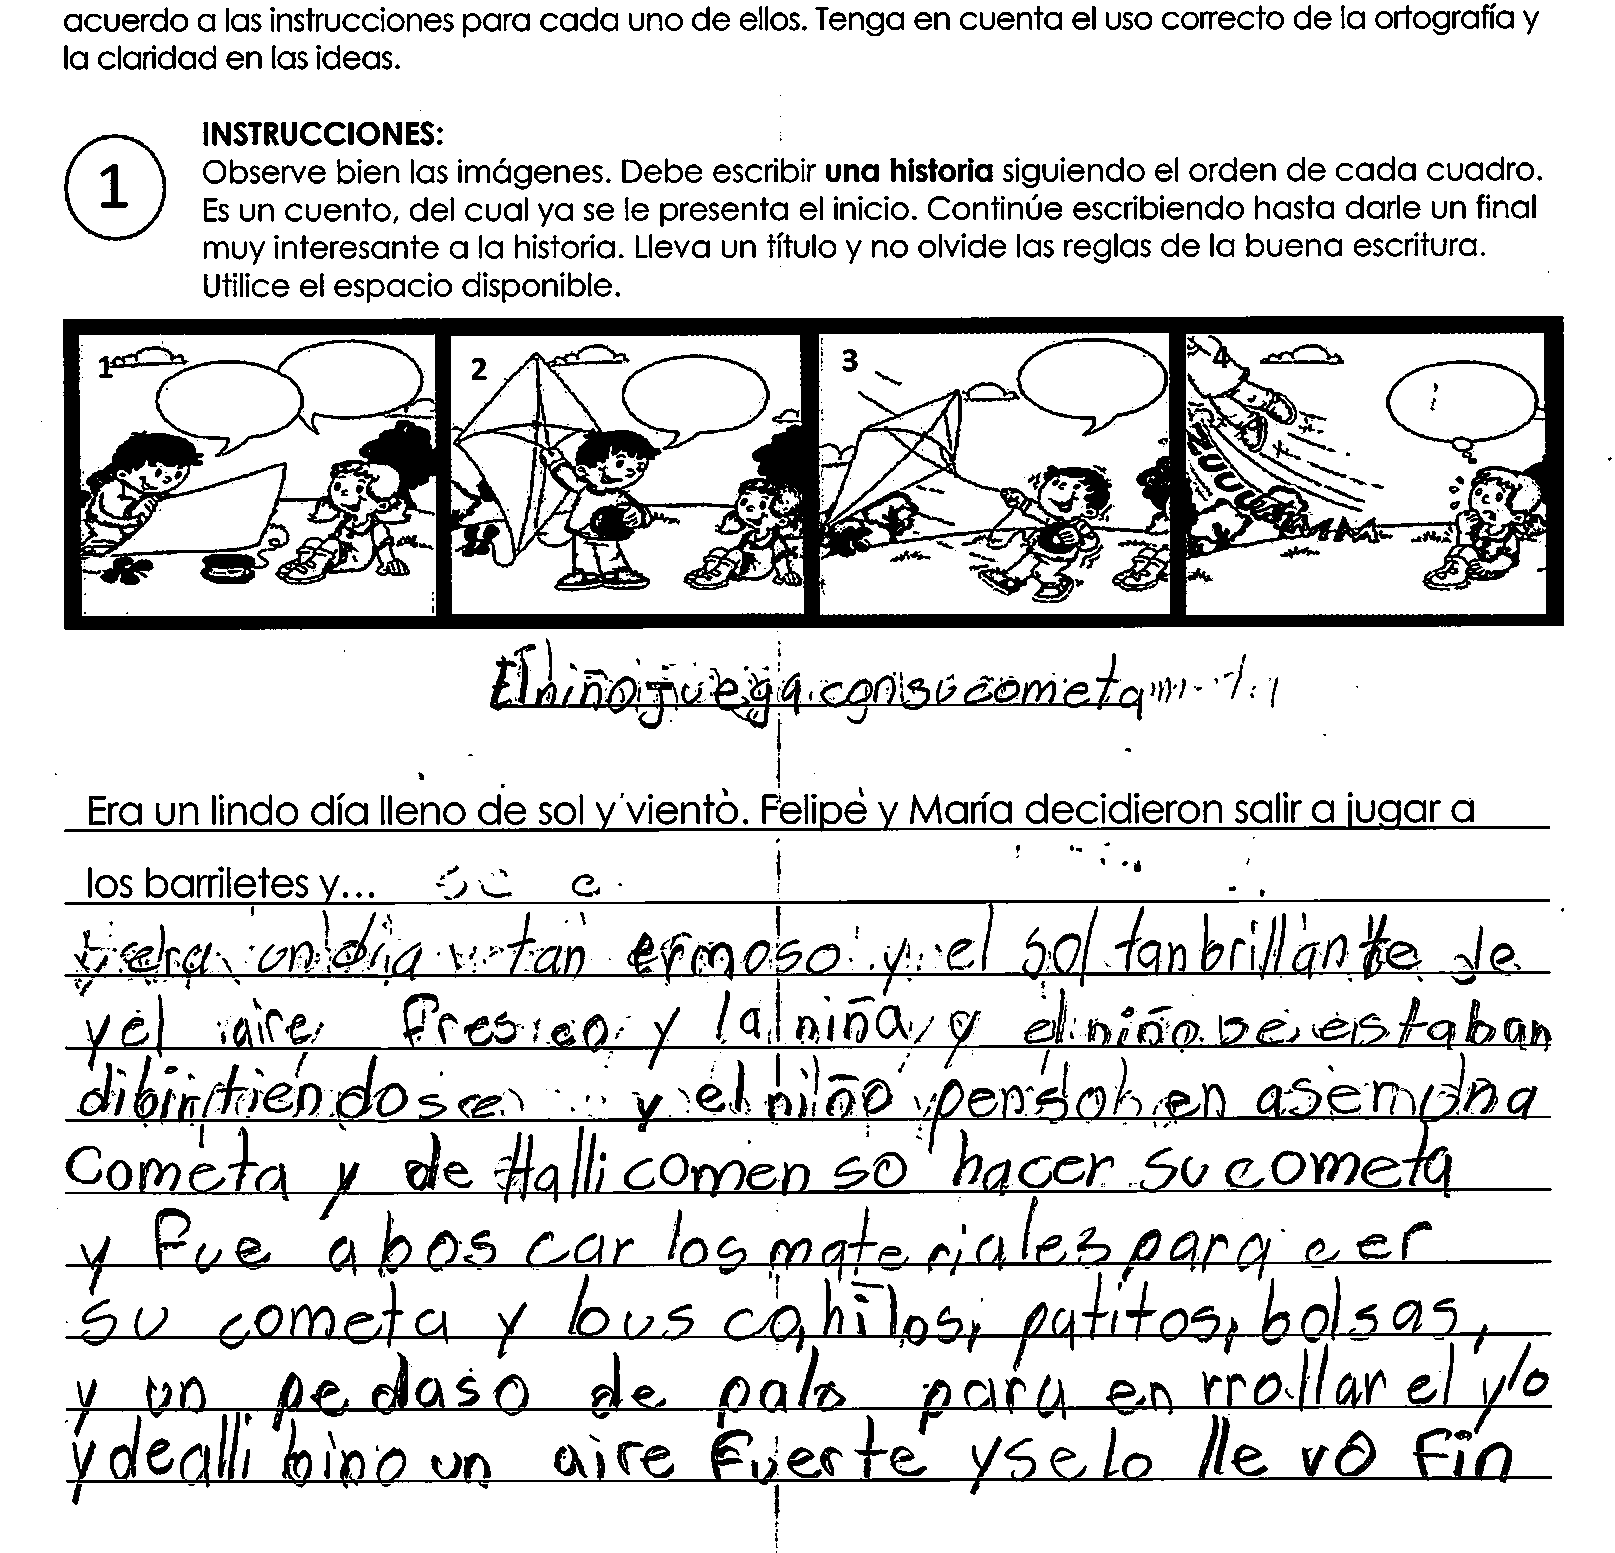 acuerdo a las instrucciones para cada uno de ellos. Tenga en cuenta el uso correcto de la ortografía y
la claridad en las ideas.
1
INSTRUCCIONES:
Observe bien las imágenes. Debe escribir una historia siguiendo el orden de cada cuadro.
Es un cuento, del cual ya se le presenta el inicio. Continúe escribiendo hasta darle un final
muy interesante a la historia. Lleva un título y no olvide las reglas de la buena escritura.
Utilice el espacio disponible.
1 2 3 4
ZUUUUMMM
El niño juega con su cometa
Era un lindo día lleno de sol y viento. Felipe y María decidieron salir a jugar a
los barriletes y...
era un dia tan ermoso y el sol tan brillante de
y el aire fresco y la niña y el niño se estaban
dibirtiendose y el niño penso en asem una
Cometa y de alli comen so hacer su cometa
y fue a bos car los materiales para cer
su cometa y bus ca hilos, patitos, bolsas,
y un pedaso de palo para en rrollar el ylo
y de alli bino un aire fuerte y se lo lle vó fin